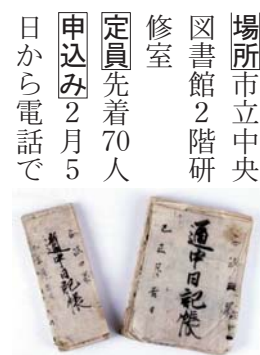 場所市立中央
図書館2階研
修室
定員先着70人
申込み2月5
日から電話で
道中日記帳
道中日記帳